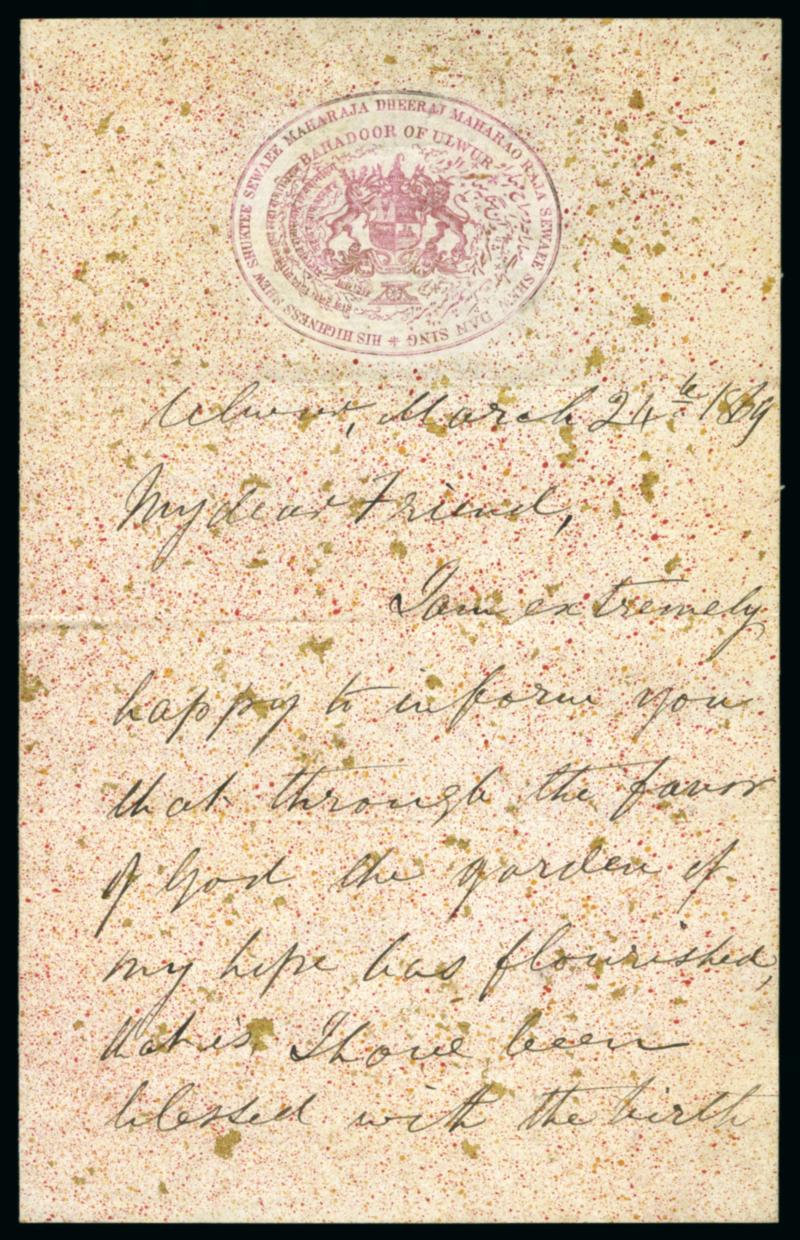 HIS HIGHNESS SHEW SHUKTEE SEWAEE MAHARAJA DHEERAJ MAHARAO RAJA SEWAEE SHEW DAN SING
BAHADOOR OF ULWUR
Ulwur, March 24th 1869
My dear Friend,
I am extremely
happy to inform you
that through the favor
of God the garden of
my hope has flourished,
that is I have been
blessed with the birth